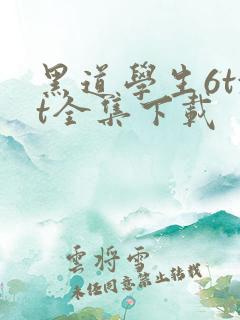 黑道學生6tx
t全集下載
雲将雪
未经同意禁止转载